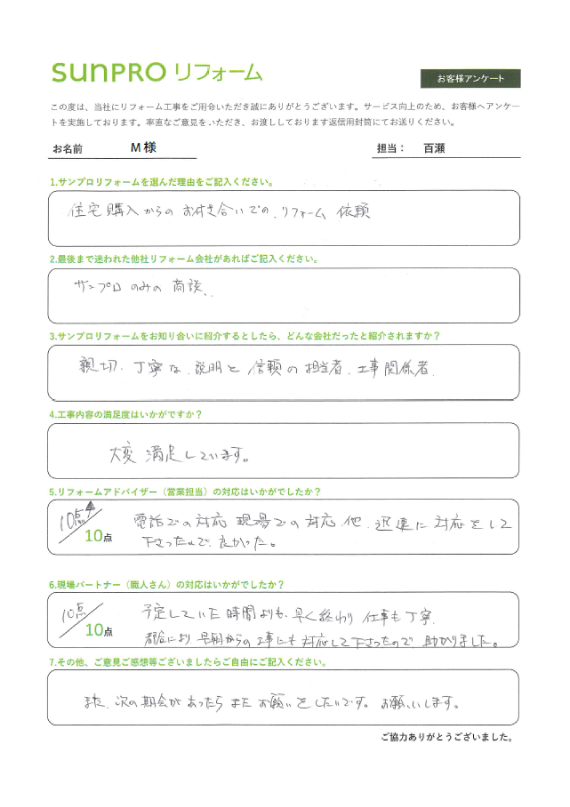 sunPRO リフォーム
お客様アンケート
この度は、当社にリフォーム工事をご用命いただき誠にありがとうございます。サービス向上のため、お客様へアンケー
トを実施しております。率直なご意見をいただき、お渡ししております返信用封筒にてお送りください。
お名前 M 様 担当： 百瀬
1.サンプロリフォームを選んだ理由をご記入ください。
住宅購入からのお付き合いでの、リフォーム 依頼
2.最後まで迷われた他社リフォーム会社があればご記入ください。
サンプロのみの商談、
3.サンプロリフォームをお知り合いに紹介するとしたら、どんな会社だったと紹介されますか？
親切、丁寧な、説明と信頼の担当者、工事関係者、
4.工事内容の満足度はいかがですか？
大変 満足しています。
5.リフォームアドバイザー（営業担当）の対応はいかがでしたか？
10点／10点
電話での対応 現場での対応 他、迅速に対応をして
下さったので、良かった。
6.現場パートナー（職人さん）の対応はいかがでしたか？
10点／10点
予定していた時間よりも、早く終わり 仕事も丁寧、
都合により 早朝からの工事にも対応して下さったので、助かりました。
7.その他、ご意見ご感想等ございましたらご自由にご記入ください。
また、次の期会があったら またお願いをしたいです。お願いします。
ご協力ありがとうございました。